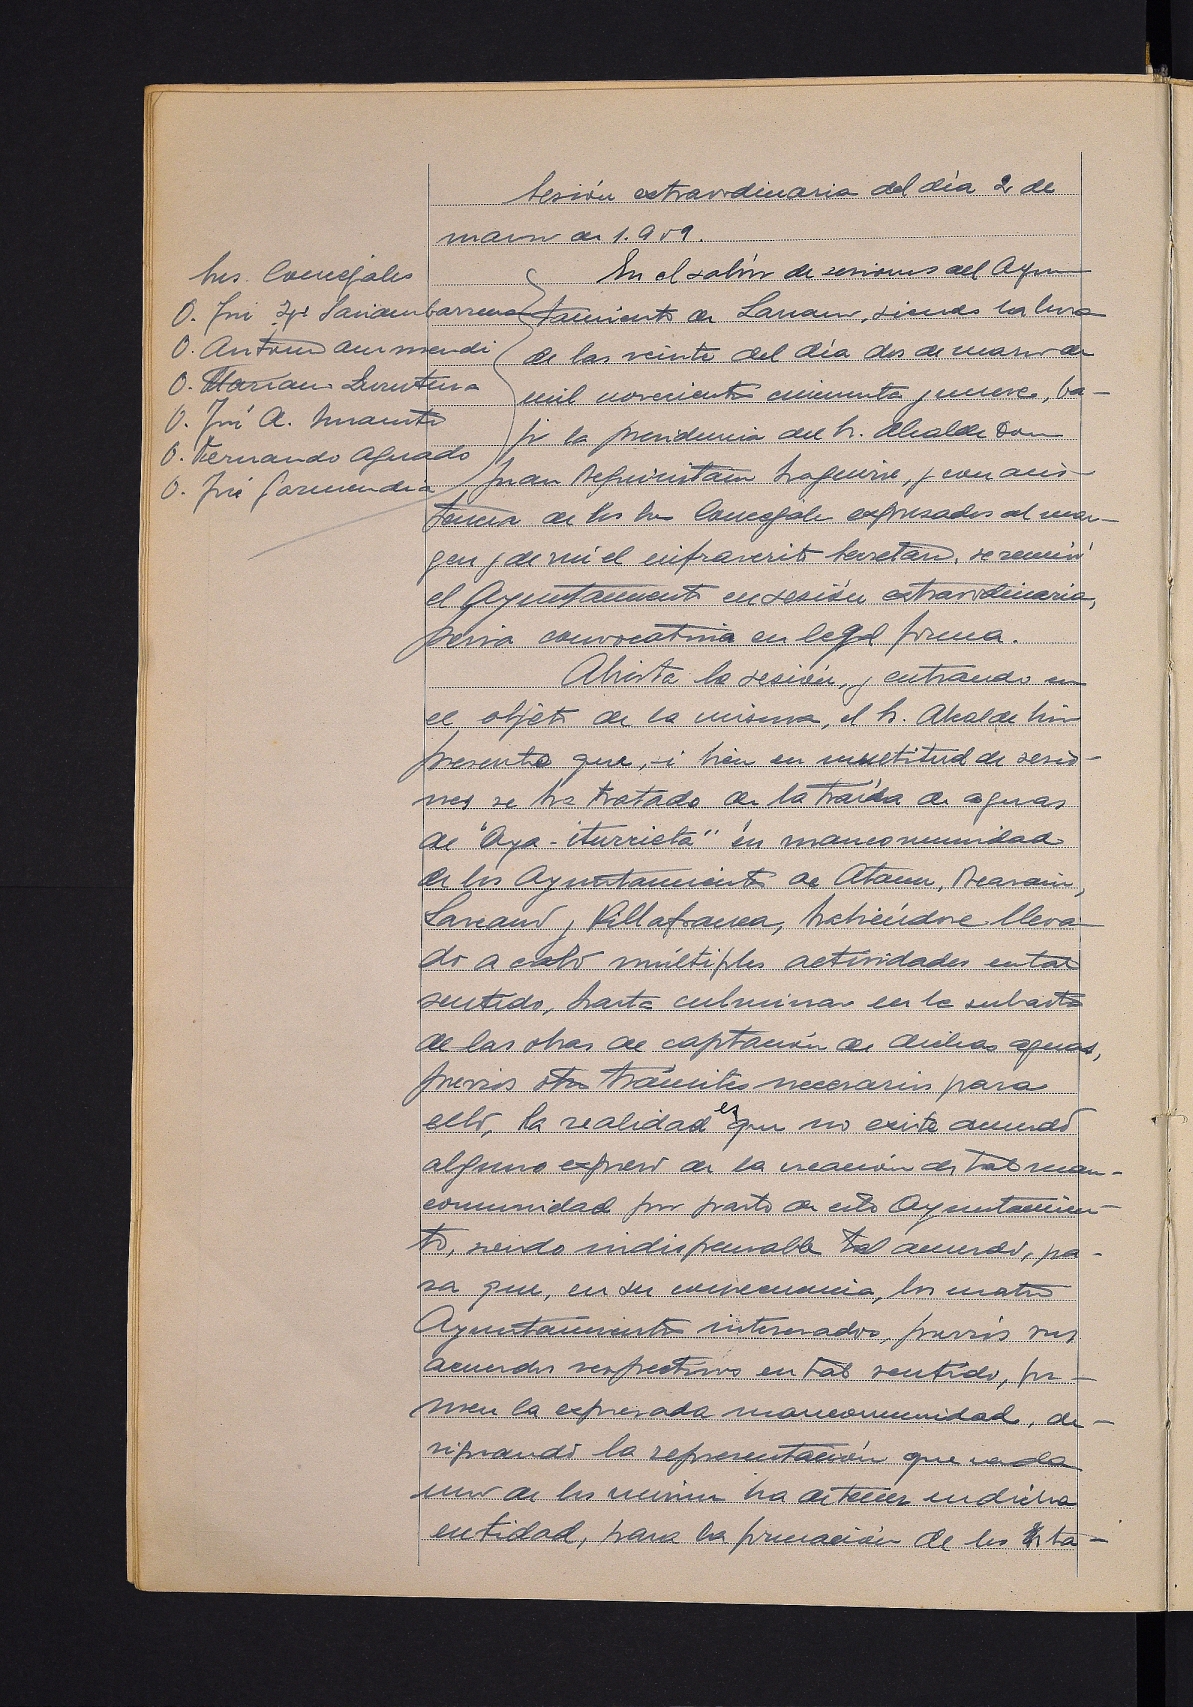 Sesión extraordinaria del día 2 de
marzo de 1.959.
Sres. Concejales
D. José
D. Antonio Aurmendi
D. Mariano
D. José A.
D. Fernando Aguado
D. José Garmendia
En el salón de sesiones del Ayun
tamiento de Lazcano, siendo la hora
de las veinte del día dos de marzo de
mil novecientos cincuenta y nueve, ba-
jo la presidencia del Sr. Alcalde Don
Juan y con asis-
tencia de los Sres Concejales expresados al mar-
gen y de mí el infrascrito Secretario, se reunió
el Ayuntamiento en sesión extraordinaria,
previa convocatoria en legal forma.
Abierta la sesión, y entrando en
el objeto de la misma, el Sr. Alcalde hizo
presente que, si bien en multitud de sesio-
nes se ha tratado de la traída de aguas
de "Aya-iturrieta" en mancomunidad
de los Ayuntamientos de Ataun, Beasain,
Lazcano y Villafranca, habiéndose lleva
do a cabo múltiples actividades en tal
sentido, hasta culminar en la subasta
de las obras de captación de dichas aguas,
previos otros trámites necesarios para
ello, la realidad es que no existe acuerdo
alguno expreso de la creación de tal man-
comunidad por parte de este Ayuntamien-
to, siendo indispensable tal acuerdo, pa-
ra que, en su consecuencia, los cuatro
Ayuntamientos interesados, previos sus
acuerdos respectivos en tal sentido, for-
men la expresada mancomunidad, de-
signando la representación que cada
uno de los mismos ha de tener en dicha
entidad, para la formación de los Esta-